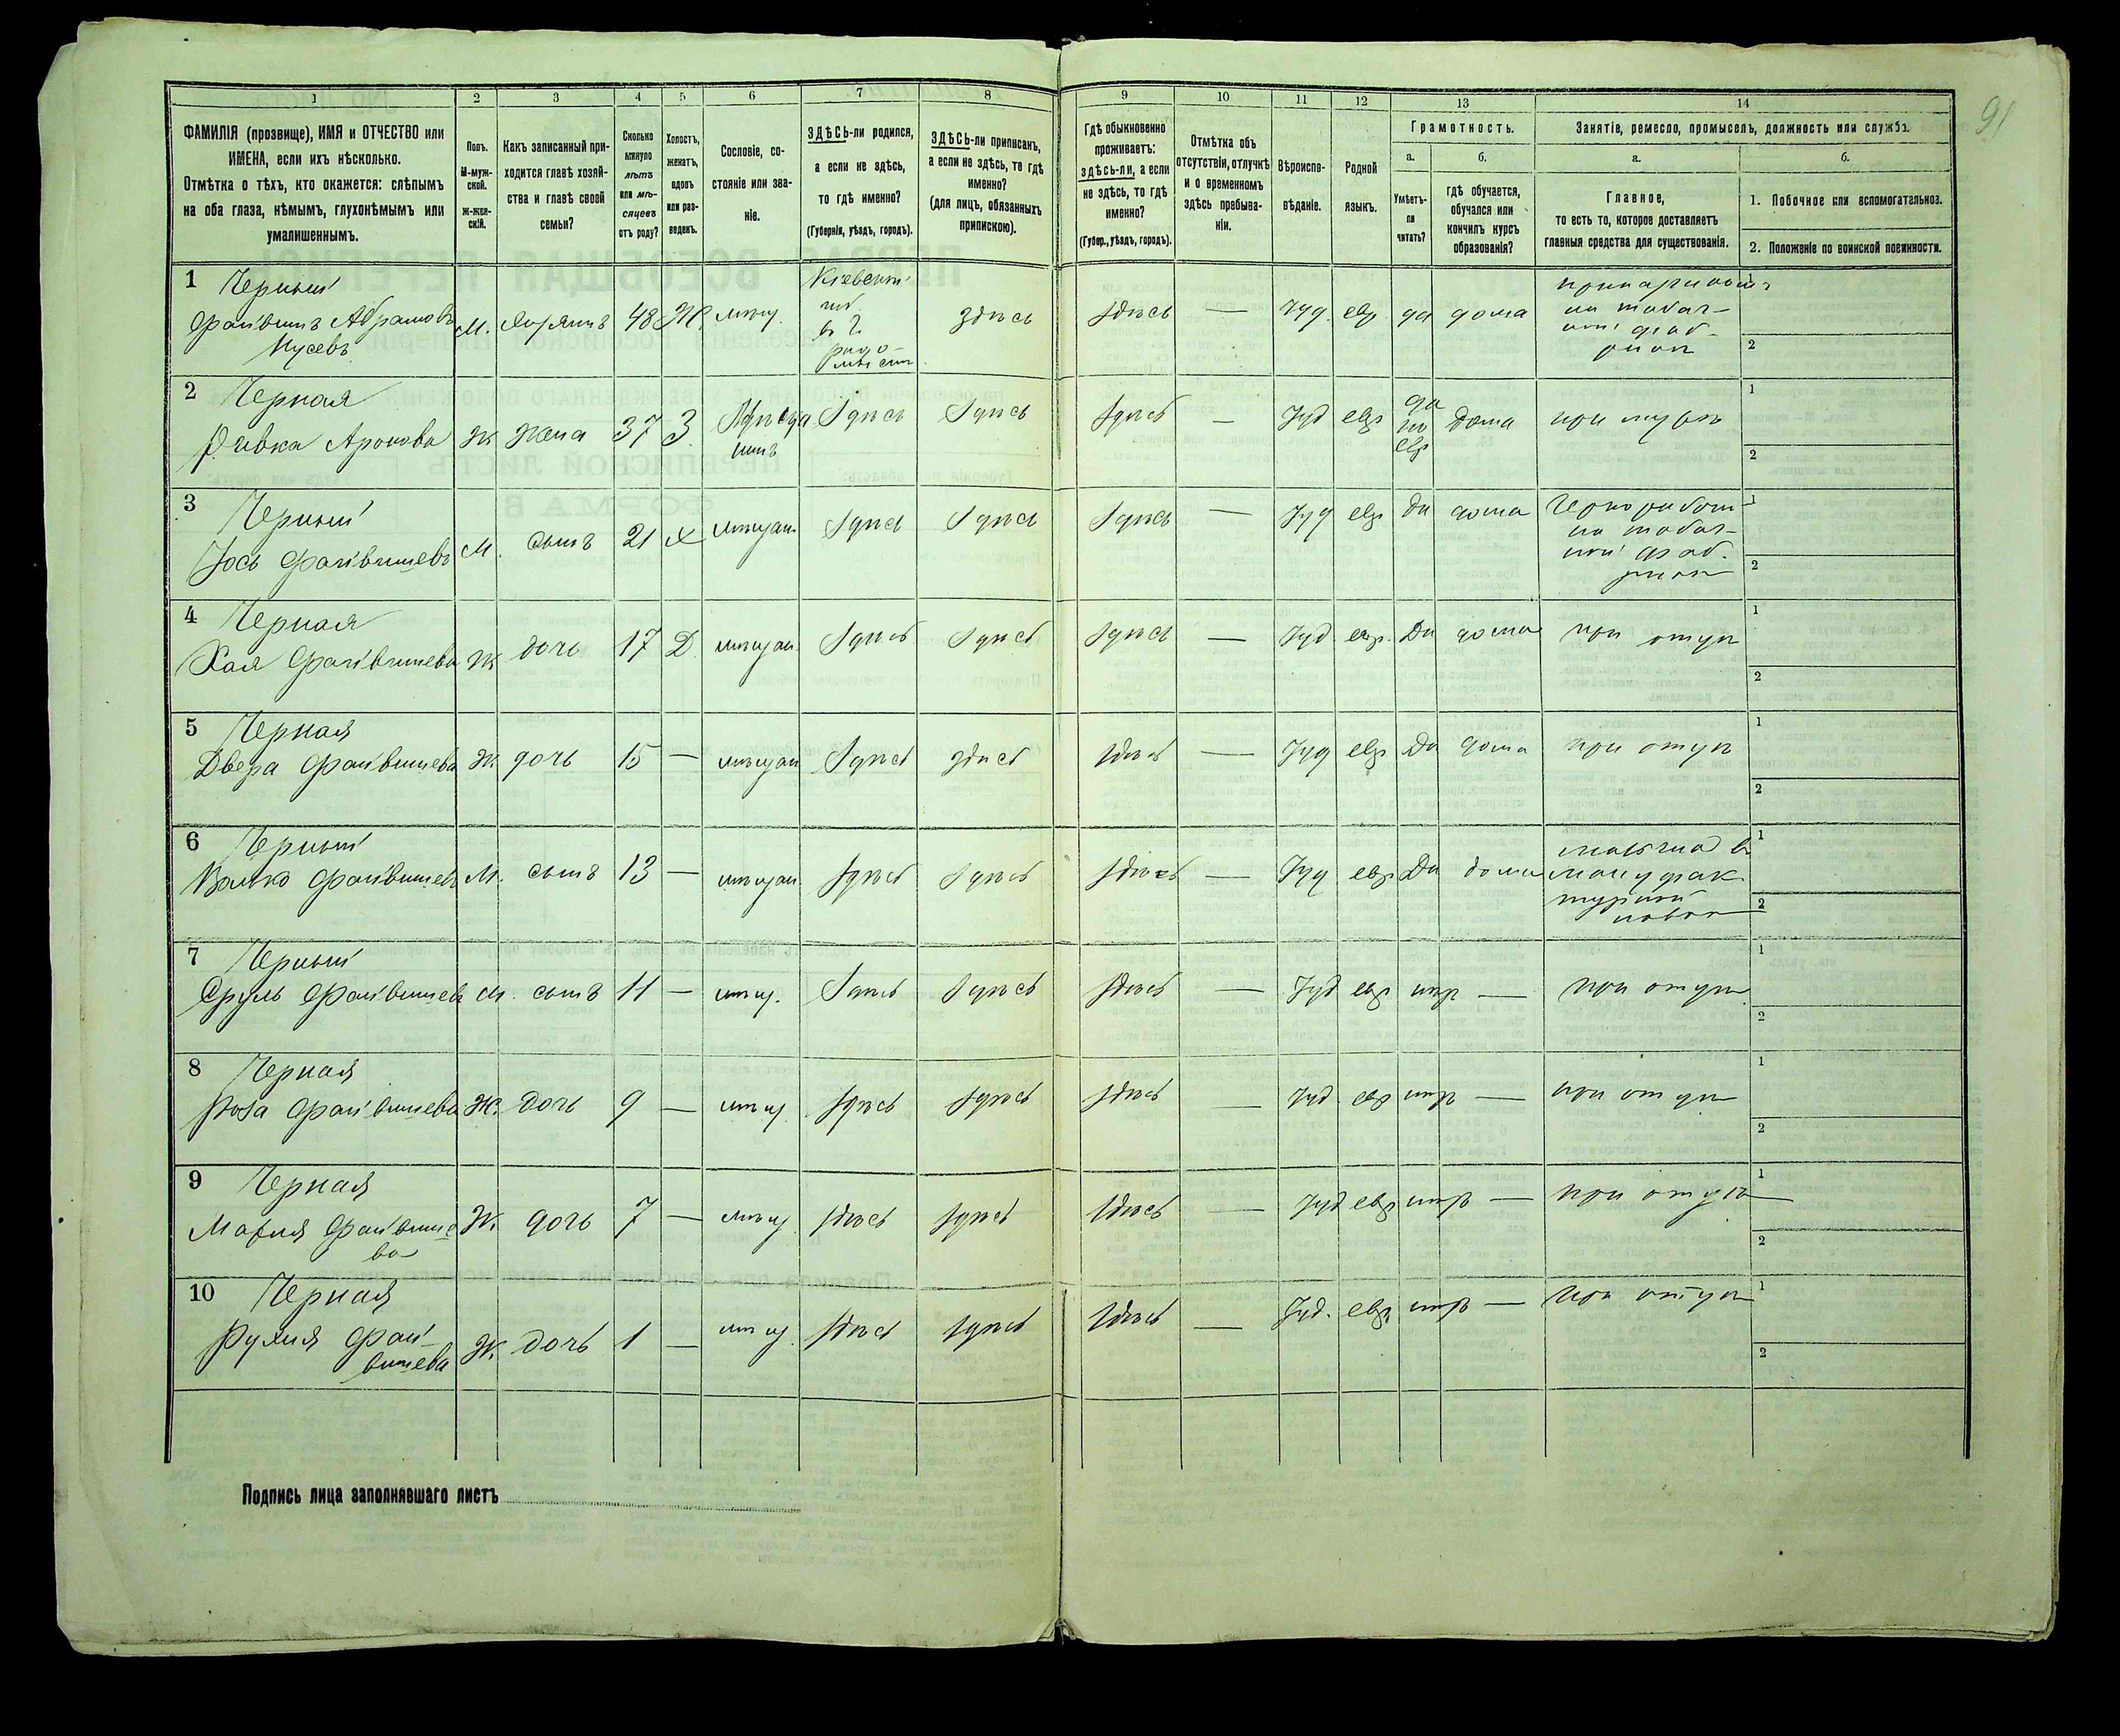 1 2 3 4 5 6 7 8 9 10 11 12 13 14
91
ФАМИЛІЯ (прозвище), ИМЯ и ОТЧЕСТВО или
ИМЕНА, если ихъ нѣсколько.
Отмѣтка о тѣхъ, кто окажется: слѣпымъ
на оба глаза, нѣмымъ, глухонѣмымъ или
умалишеннымъ.
Полъ.
М-муж-
ской.
Ж-жен-
скій.
Какъ записанный при-
ходится главѣ хозяй-
ства и главѣ своей
семьи?
Сколько
минуло
лѣтъ
или мѣ-
сяцевъ
отъ роду?
Холостъ,
женатъ,
вдовъ
или раз-
веденъ.
Сословіе, со-
стояніе или зва-
ніе.
ЗДѢСЬ-ли родился,
а если не здѣсь,
то гдѣ именно?
(Губернія, уѣздъ, городъ).
ЗДѢСЬ-ли приписанъ,
а если не здѣсь, то гдѣ
именно?
(для лицъ, обязанныхъ
припискою).
Гдѣ обыкновенно
проживаетъ:
здѣсь-ли, а если
не здѣсь, то гдѣ
именно?
(Губер., уѣздъ, городъ).
Отмѣтка объ
отсутствіи, отлучкѣ
и о временномъ
здѣсь пребыва-
ніи.
Вѣроиспо-
вѣданіе.
Родной
языкъ.
Грамотность.
а.
Умѣетъ-
ли
читать?
б.
гдѣ обучается,
обучался или
кончилъ курсъ
образованія?
Занятіе, ремесло, промыселъ, должность или служба.
а.
Главное,
то есть то, которое доставляетъ
главныя средства для существованія.
б.
1. Побочное или вспомогательное.
2. Положеніе по воинской повинности.
1 Черный
Файвишъ Абрамовъ
Нусевъ
М. хозяинъ 48 Ж. мѣщ. Кіевской
губ
въ г.
Радо-
мысль
здѣсь здѣсь — Іуд. евр. да дома
на табач-
ной фаб-
рикѣ
1
2
2 Черная
Ривка Аронова Ж жена 37 З. здѣсь здѣсь здѣсь — Іуд евр да
по
евр
дома при мужѣ
1
2
3 Черный
Іось Файвишевъ М. сынъ 21 Х мѣщан. здѣсь здѣсь здѣсь — Іуд евр да дома Чернорабоч.
на табач-
ной фаб-
рикѣ
1
2
4 Черная
Хая Файвишева Ж дочь 17 Д. мѣщан. здѣсь здѣсь здѣсь — Іуд. евр. Да дома при отцѣ
1
2
5 Черная
Двера Файвишева Ж. дочь 15 — мѣщан здѣсь здѣсь здѣсь — Іуд евр Да дома при отцѣ
1
2
6 Черный
Волько Файвишевъ М. сынъ 13 — мѣщан. здѣсь здѣсь здѣсь — Іуд евр Да дома мальчик въ
мануфак
турной
лавкѣ
1
2
7 Черный
Сруль Файвишевъ М. сынъ 11 — мѣщ. здѣсь здѣсь здѣсь — Іуд евр нѣтъ — при отцѣ
1
2
8 Черная
Роза Файвишева Ж. дочь 9 — мѣщ здѣсь здѣсь здѣсь — Іуд евр нѣтъ — при отцѣ
1
2
9 Черная
Марія Файвише
ва
Ж. дочь 7 — мѣщ здѣсь здѣсь здѣсь — Іуд евр нѣтъ — при отцѣ
1
2
10 Черная
Рухля Фай-
вишева
Ж. дочь 1 — мѣщ. здѣсь здѣсь здѣсь — Іуд. евр. нѣтъ — при отцѣ
1
2
Подпись лица заполнявшаго листъ